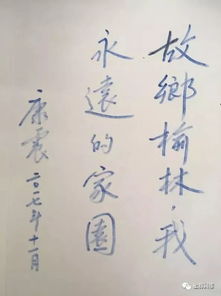 故鄉榆林，我
永遠的家園
康震
二〇一七年十一月